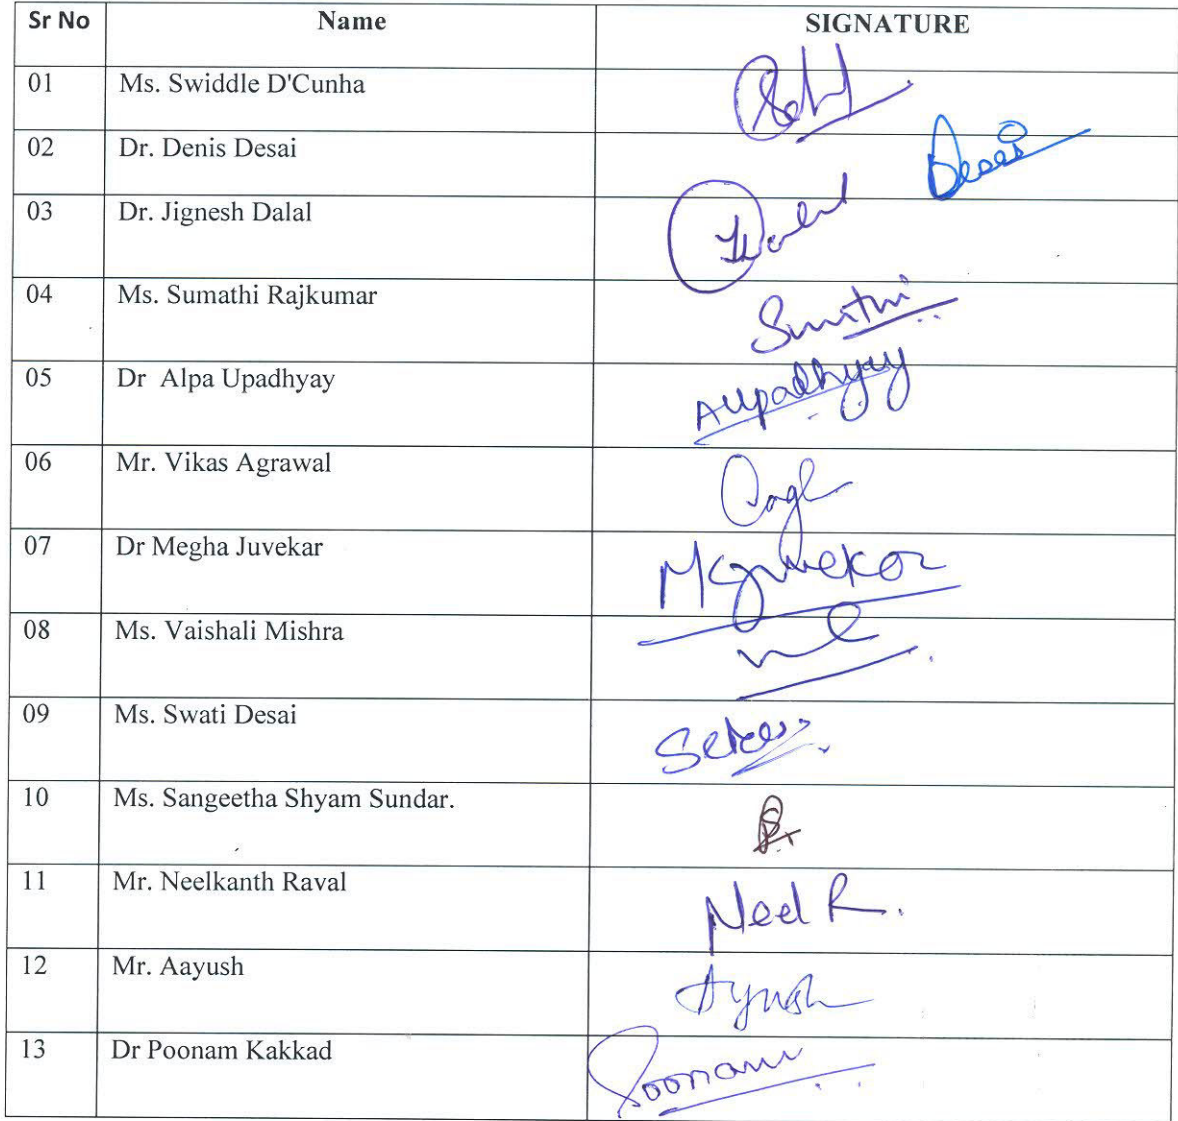 Sr No Name SIGNATURE
01 Ms. Swiddle D'Cunha
02 Dr. Denis Desai Desai
03 Dr. Jignesh Dalal
04 Ms. Sumathi Rajkumar
05 Dr Alpa Upadhyay AUpadhyay
06 Mr. Vikas Agrawal
07 Dr Megha Juvekar
08 Ms. Vaishali Mishra
09 Ms. Swati Desai
10 Ms. Sangeetha Shyam Sundar.
11 Mr. Neelkanth Raval Neel R.
12 Mr. Aayush Ayush
13 Dr Poonam Kakkad Poonam